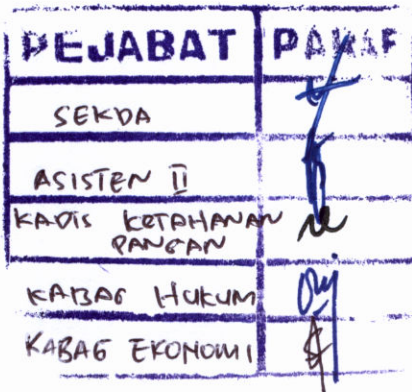 PEJABAT PARAF
SEKDA
ASISTEN II
KADIS KETAHANAN
PANGAN
KABAG HUKUM
KABAG EKONOMI